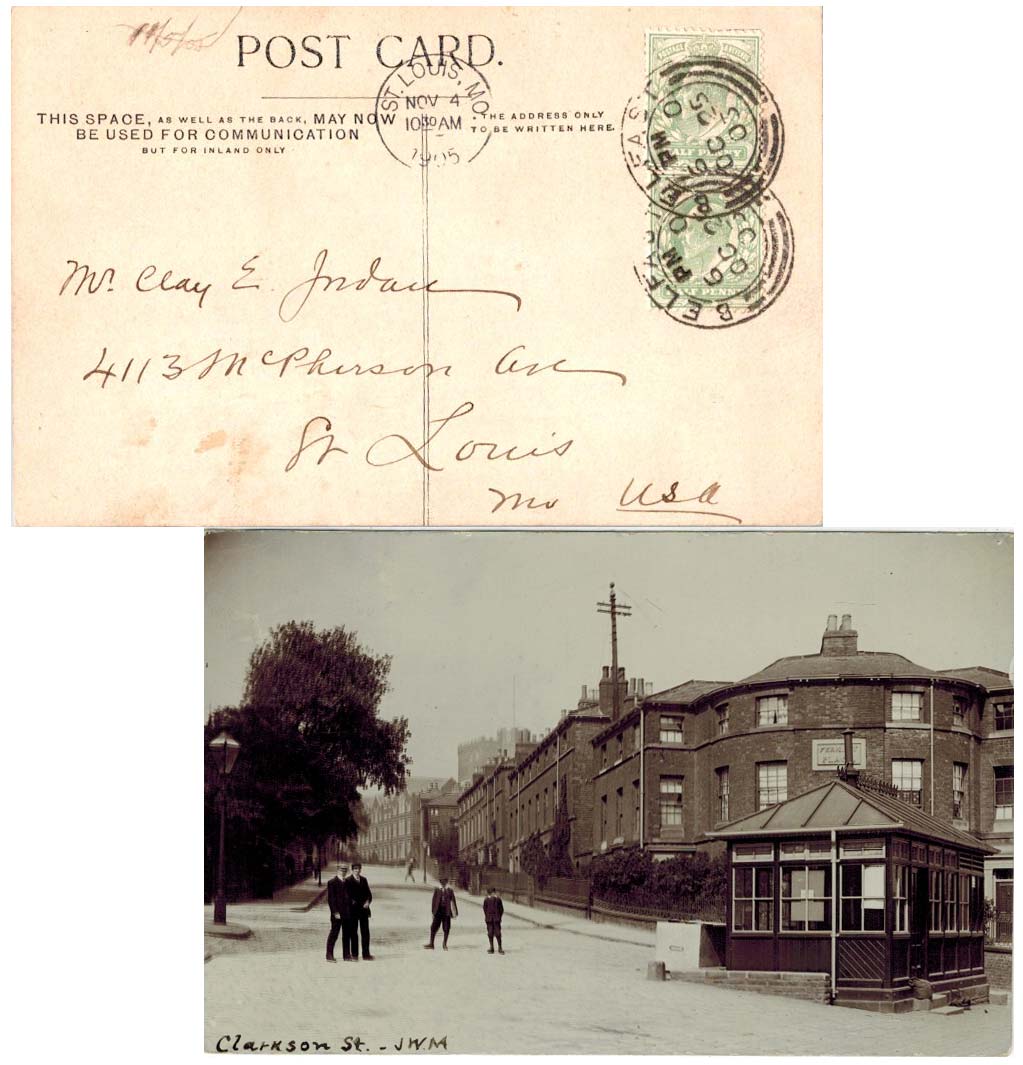 11/5/05
POST CARD.
THIS SPACE, AS WELL AS THE BACK, MAY NOW
BE USED FOR COMMUNICATION
BUT FOR INLAND ONLY
THE ADDRESS ONLY
TO BE WRITTEN HERE.
ST. LOUIS, MO.
NOV 4
10 30 AM
1905
POSTAGE
HALF PENNY
BELFAST
OC 25
05
BELFAST
PM
OC
05
HALF PENNY
Mr. Clay E. Jordan
4113 McPherson Ave
St Louis
Mo USA
Clarkson St. - JWM